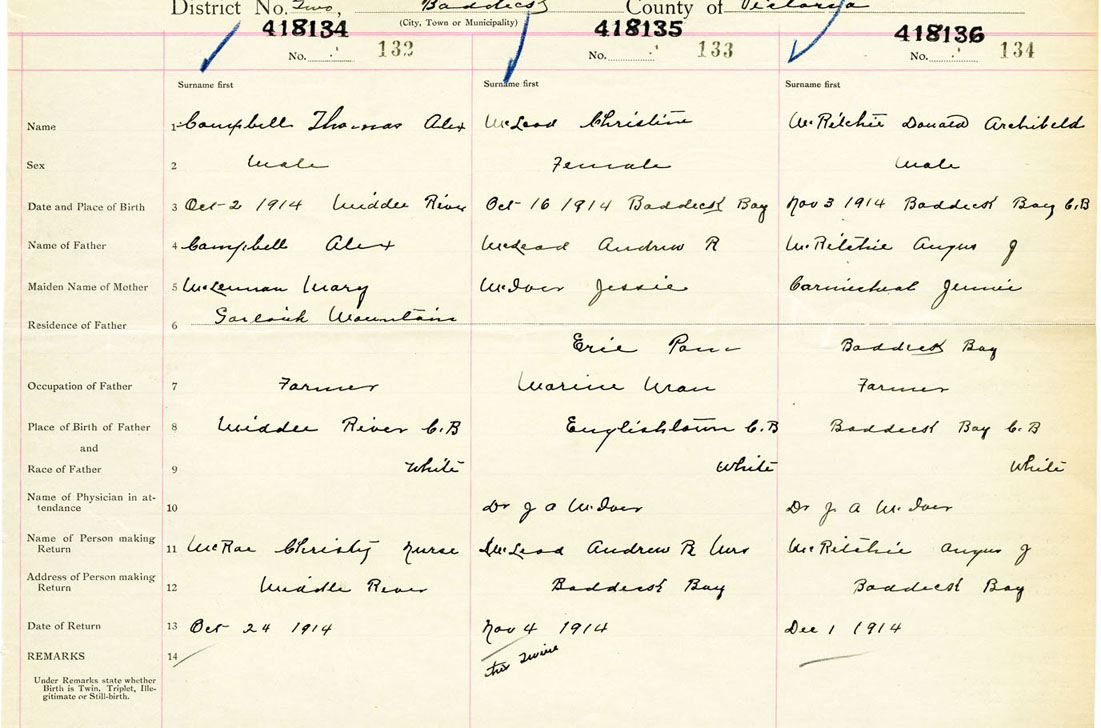 District No. Two, Baddeck County of Victoria
(City, Town or Municipality)
418134 418135 418136
No. 132 No. 133 No. 134
Surname first Surname first Surname first
Name 1 Campbell Thomas Alex McLeod Christine McRitchie Donald Archibald
Sex 2 Male Female Male
Date and Place of Birth 3 Oct 2 1914 Middle River Oct 16 1914 Baddeck Bay Nov 3 1914 Baddeck Bay C.B
Name of Father 4 Campbell Alex McLeod Andrew R McRitchie Angus J
Maiden Name of Mother 5 McLennan Mary McIver Jessie Carmichael Jennie
Residence of Father 6 Mountain
Erie Baddeck Bay
Occupation of Father 7 Farmer Marine Man Farmer
Place of Birth of Father 8 Middle River C.B Englishtown C.B Baddeck Bay C.B
and
Race of Father 9 White White White
Name of Physician in at-
tendance 10 Dr J A McIver Dr J. A McIver
Name of Person making
Return 11 McRae Christy Nurse McLeod Andrew R Mrs McRitchie Angus J
Address of Person making
Return 12 Middle River Baddeck Bay Baddeck Bay
Date of Return 13 Oct 24 1914 Nov 4 1914 Dec 1 1914
REMARKS 14
Under Remarks state whether
Birth is Twin, Triplet, Ille-
gitimate or Still-birth.